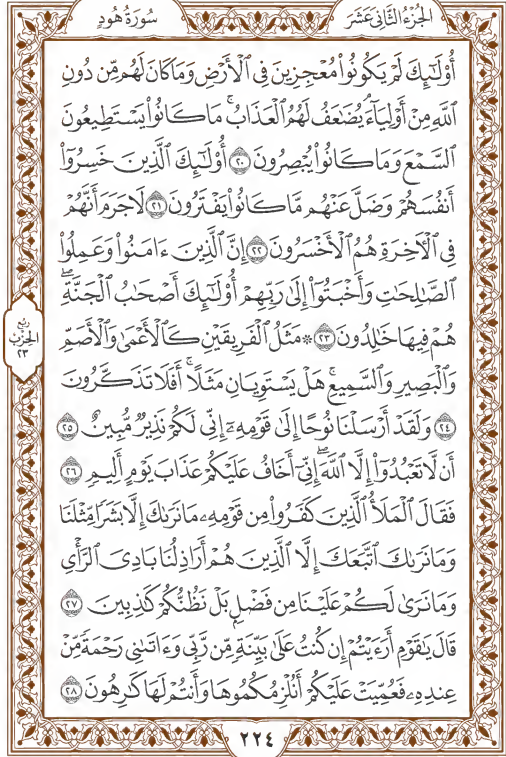 الجُزْءُ الثَّانِي عَشَرَ
سُورَةُ هُودٍ
أُوْلَٰٓئِكَ لَمْ يَكُونُواْ مُعْجِزِينَ فِي ٱلْأَرْضِ وَمَا كَانَ لَهُم مِّن دُونِ
ٱللَّهِ مِنْ أَوْلِيَآءَۘ يُضَٰعَفُ لَهُمُ ٱلْعَذَابُۚ مَا كَانُواْ يَسْتَطِيعُونَ
ٱلسَّمْعَ وَمَا كَانُواْ يُبْصِرُونَ ٢٠ أُوْلَٰٓئِكَ ٱلَّذِينَ خَسِرُوٓاْ
أَنفُسَهُمْ وَضَلَّ عَنْهُم مَّا كَانُواْ يَفْتَرُونَ ٢١ لَا جَرَمَ أَنَّهُمْ
فِي ٱلْأٓخِرَةِ هُمُ ٱلْأَخْسَرُونَ ٢٢ إِنَّ ٱلَّذِينَ ءَامَنُواْ وَعَمِلُواْ
ٱلصَّٰلِحَٰتِ وَأَخْبَتُوٓاْ إِلَىٰ رَبِّهِمْ أُوْلَٰٓئِكَ أَصْحَٰبُ ٱلْجَنَّةِۖ
هُمْ فِيهَا خَٰلِدُونَ ٢٣ ۞ مَثَلُ ٱلْفَرِيقَيْنِ كَٱلْأَعْمَىٰ وَٱلْأَصَمِّ
وَٱلْبَصِيرِ وَٱلسَّمِيعِۚ هَلْ يَسْتَوِيَانِ مَثَلًاۚ أَفَلَا تَذَكَّرُونَ
٢٤ وَلَقَدْ أَرْسَلْنَا نُوحًا إِلَىٰ قَوْمِهِۦٓ إِنِّي لَكُمْ نَذِيرٌ مُّبِينٌ ٢٥
أَن لَّا تَعْبُدُوٓاْ إِلَّا ٱللَّهَۖ إِنِّيٓ أَخَافُ عَلَيْكُمْ عَذَابَ يَوْمٍ أَلِيمٍ ٢٦
فَقَالَ ٱلْمَلَأُ ٱلَّذِينَ كَفَرُواْ مِن قَوْمِهِۦ مَا نَرَىٰكَ إِلَّا بَشَرًا مِّثْلَنَا
وَمَا نَرَىٰكَ ٱتَّبَعَكَ إِلَّا ٱلَّذِينَ هُمْ أَرَاذِلُنَا بَادِيَ ٱلرَّأْيِ
وَمَا نَرَىٰ لَكُمْ عَلَيْنَا مِن فَضْلٍۭ بَلْ نَظُنُّكُمْ كَٰذِبِينَ ٢٧
قَالَ يَٰقَوْمِ أَرَءَيْتُمْ إِن كُنتُ عَلَىٰ بَيِّنَةٍ مِّن رَّبِّي وَءَاتَىٰنِي رَحْمَةً مِّنْ
عِندِهِۦ فَعُمِّيَتْ عَلَيْكُمْ أَنُلْزِمُكُمُوهَا وَأَنتُمْ لَهَا كَٰرِهُونَ ٢٨
رُبْعُ
الحِزْبِ
٢٣
٢٢٤